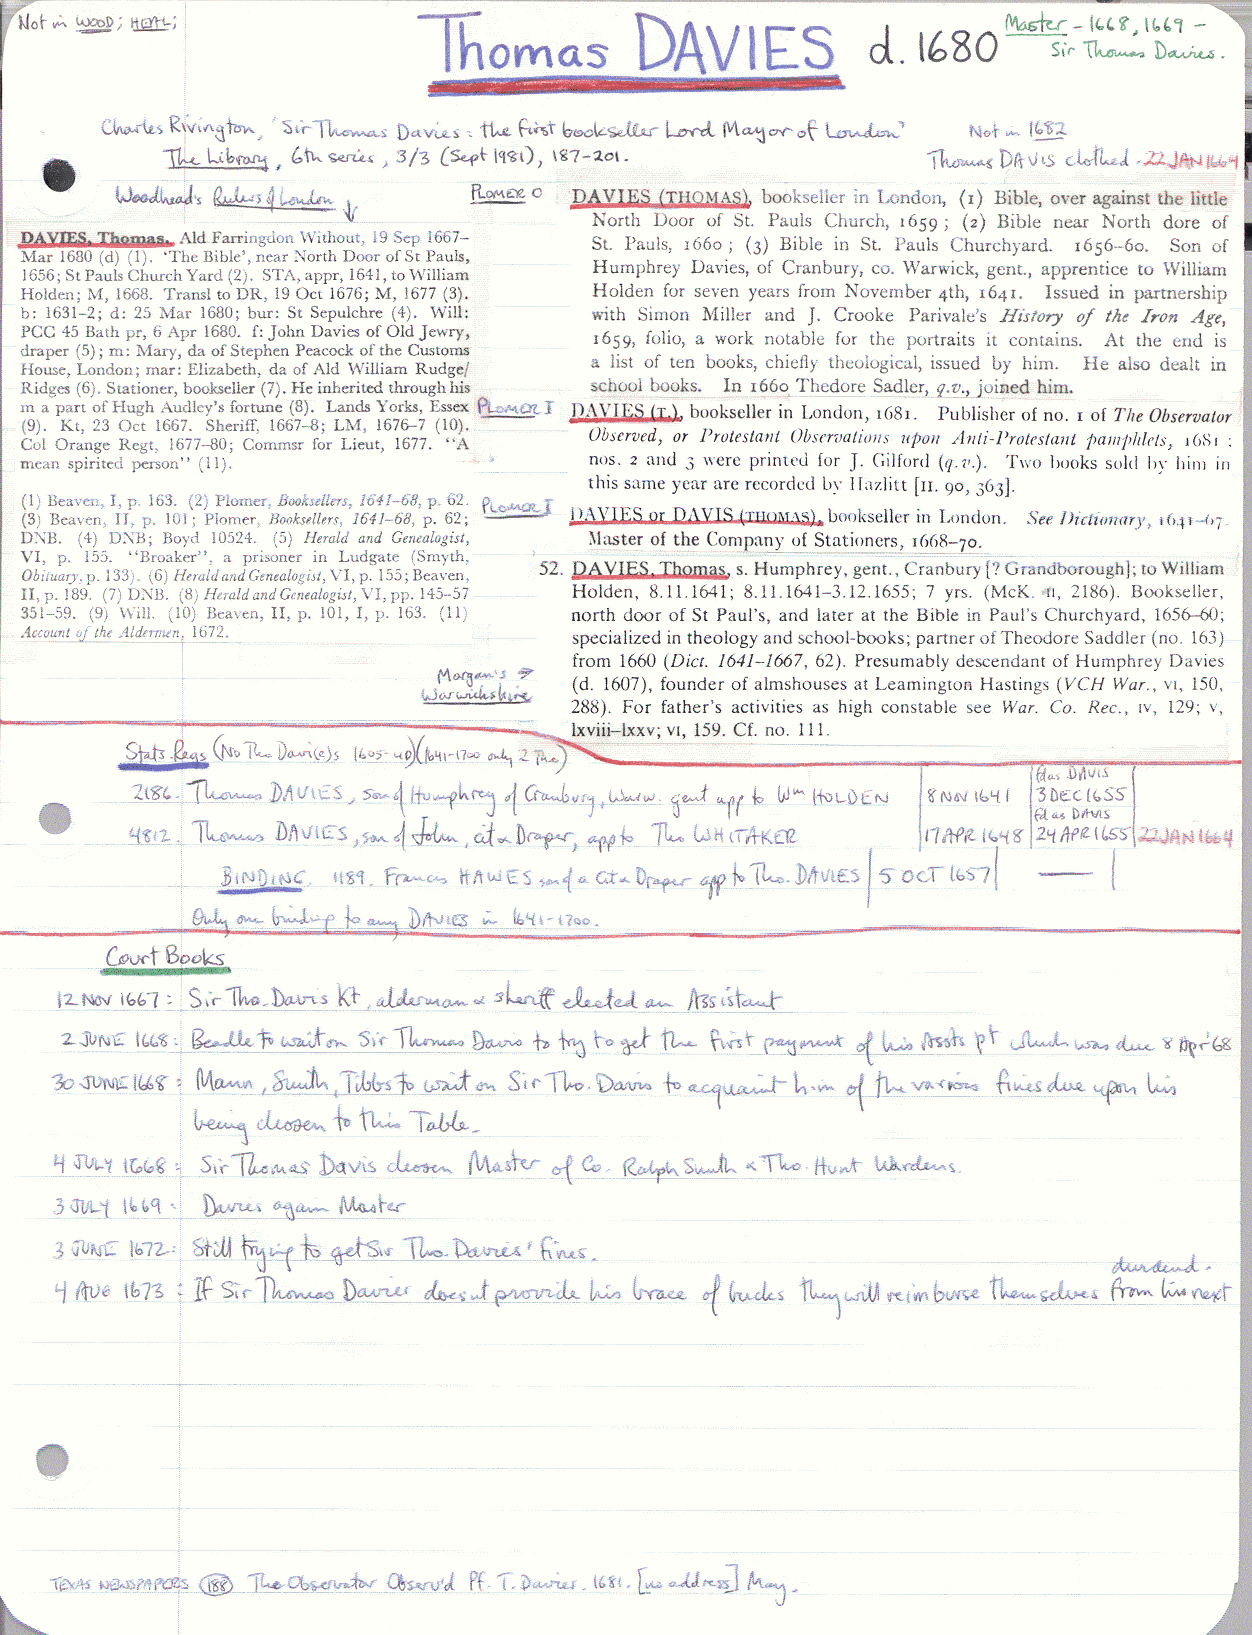 Not in WOOD; HEAL;
Thomas DAVIES d. 1680
Master - 1668, 1669 -
Sir Thomas Davies.
Charles Rivington, 'Sir Thomas Davies: the first bookseller Lord Mayor of London'
The Library, 6th series, 3/3 (Sept 1981), 187-201.
Not in 1682
Thomas DAVIS clothed. 22 JAN 1664
Woodhead's Rulers of London ↓
DAVIES, Thomas. Ald Farringdon Without, 19 Sep 1667–
Mar 1680 (d) (1). 'The Bible', near North Door of St Pauls,
1656; St Pauls Church Yard (2). STA, appr, 1641, to William
Holden; M, 1668. Transl to DR, 19 Oct 1676; M, 1677 (3).
b: 1631–2; d: 25 Mar 1680; bur: St Sepulchre (4). Will:
PCC 45 Bath pr, 6 Apr 1680. f: John Davies of Old Jewry,
draper (5); m: Mary, da of Stephen Peacock of the Customs
House, London; mar: Elizabeth, da of Ald William Rudge/
Ridges (6). Stationer, bookseller (7). He inherited through his
m a part of Hugh Audley's fortune (8). Lands Yorks, Essex
(9). Kt, 23 Oct 1667. Sheriff, 1667–8; LM, 1676–7 (10).
Col Orange Regt, 1677–80; Commsr for Lieut, 1677. "A
mean spirited person" (11).
(1) Beaven, I, p. 163. (2) Plomer, Booksellers, 1641–68, p. 62.
(3) Beaven, II, p. 101; Plomer, Booksellers, 1641–68, p. 62;
DNB. (4) DNB; Boyd 10524. (5) Herald and Genealogist,
VI, p. 155. "Broaker", a prisoner in Ludgate (Smyth,
Obituary, p. 133). (6) Herald and Genealogist, VI, p. 155; Beaven,
II, p. 189. (7) DNB. (8) Herald and Genealogist, VI, pp. 145–57
351–59. (9) Will. (10) Beaven, II, p. 101, I, p. 163. (11)
Account of the Aldermen, 1672.
PLOMER O
DAVIES (THOMAS), bookseller in London, (1) Bible, over against the little
North Door of St. Pauls Church, 1659; (2) Bible near North dore of
St. Pauls, 1660; (3) Bible in St. Pauls Churchyard. 1656–60. Son of
Humphrey Davies, of Cranbury, co. Warwick, gent., apprentice to William
Holden for seven years from November 4th, 1641. Issued in partnership
with Simon Miller and J. Crooke Parivale's History of the Iron Age,
1659, folio, a work notable for the portraits it contains. At the end is
a list of ten books, chiefly theological, issued by him. He also dealt in
school books. In 1660 Thedore Sadler, q.v., joined him.
PLOMER I
DAVIES (T.), bookseller in London, 1681. Publisher of no. 1 of The Observator
Observed, or Protestant Observations upon Anti-Protestant pamphlets, 1681;
nos. 2 and 3 were printed for J. Gilford (q.v.). Two books sold by him in
this same year are recorded by Hazlitt [II. 90, 363].
PLOMER I
DAVIES or DAVIS (THOMAS), bookseller in London. See Dictionary, 1641–67.
Master of the Company of Stationers, 1668–70.
52. DAVIES, Thomas, s. Humphrey, gent., Cranbury [? Grandborough]; to William
Holden, 8.11.1641; 8.11.1641–3.12.1655; 7 yrs. (McK. II, 2186). Bookseller,
north door of St Paul's, and later at the Bible in Paul's Churchyard, 1656–60;
specialized in theology and school-books; partner of Theodore Saddler (no. 163)
from 1660 (Dict. 1641–1667, 62). Presumably descendant of Humphrey Davies
(d. 1607), founder of almshouses at Leamington Hastings (VCH War., VI, 150,
288). For father's activities as high constable see War. Co. Rec., IV, 129; V,
lxviii–lxxv; VI, 159. Cf. no. 111.
Morgan's →
Warwickshire
Stats. Regs (No Tho Davi(e)s 1605-40) (1641-1700 only 2 Tho)
2186. Thomas DAVIES, son of Humphrey of Cranbury, Warw. gent app to Wm HOLDEN | 8 NOV 1641 | fd as DAVIS 3 DEC 1655
4812. Thomas DAVIES, son of John, cit & Draper, app to Tho WHITAKER | 17 APR 1648 | fd as DAVIS 24 APR 1655 | 22 JAN 1664
BINDING. 1189. Francis HAWES son of a Cit & Draper app to Tho. DAVIES | 5 OCT 1657 | —
Only one binding to any DAVIES in 1641-1700.
Court Books
12 NOV 1667: Sir Tho. Davis Kt, alderman & sheriff elected an Assistant
2 JUNE 1668: Beadle to wait on Sir Thomas Davis to try to get the first payment of his Assts pt which was due 8 Apr '68
30 JUNE 1668: Mann, Smith, Tibbs to wait on Sir Tho. Davis to acquaint him of the various fines due upon his
being chosen to this Table.
4 JULY 1668: Sir Thomas Davis chosen Master of Co. Ralph Smith & Tho. Hunt Wardens.
3 JULY 1669: Davies again Master
3 JUNE 1672: Still trying to get Sir Tho. Davies' fines.
4 AUG 1673: If Sir Thomas Davies doesnt provide his brace of bucks they will reimburse themselves from his next
dividend.
TEXAS NEWSPAPERS (188) The Observator Observ'd Pf. T. Davies. 1681. [no address] May.